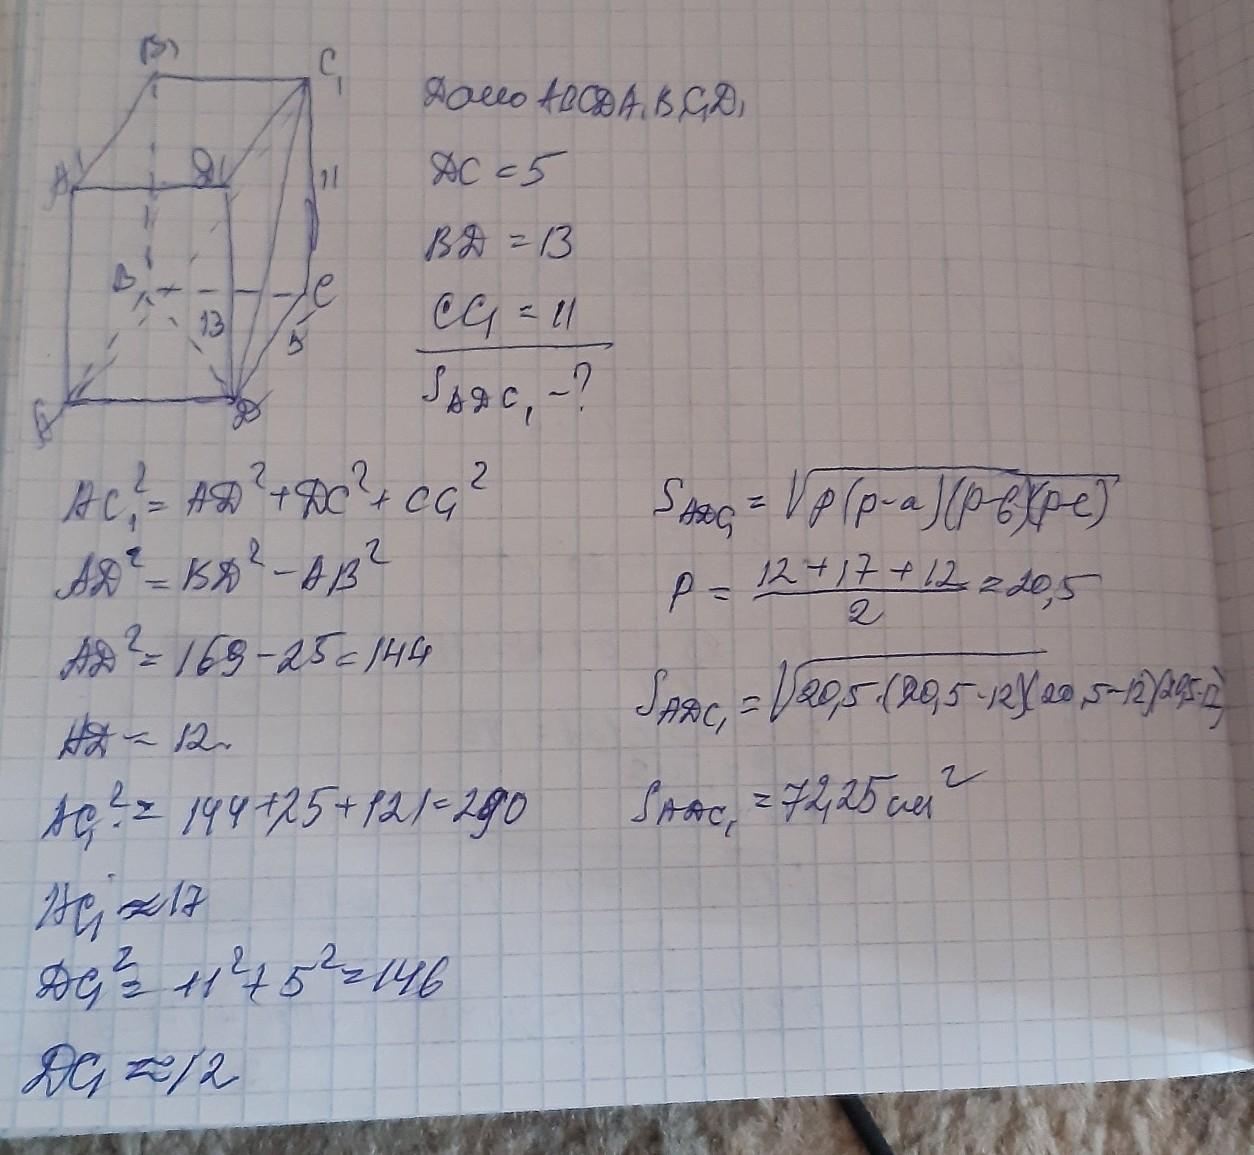 B₁
C₁
A₁
D₁
11
B
C
13
5
A
D
Дано ABCDA₁B₁C₁D₁
DC = 5
BD = 13
CC₁ = 11
S_ADC₁ - ?
AC₁² = AD² + DC² + CC₁²
AD² = BD² - AB²
AD² = 169 - 25 = 144
AD = 12.
AC₁² = 144 + 25 + 121 = 290
AC₁ ≈ 17
DC₁² = 11² + 5² = 146
DC₁ ≈ 12
S_ADC₁ = √p(p-a)(p-b)(p-c)
P = (12 + 17 + 12)/2 = 20,5
S_ADC₁ = √20,5·(20,5-12)(20,5-12)(20,5-17)
S_ADC₁ = 72,25 см²